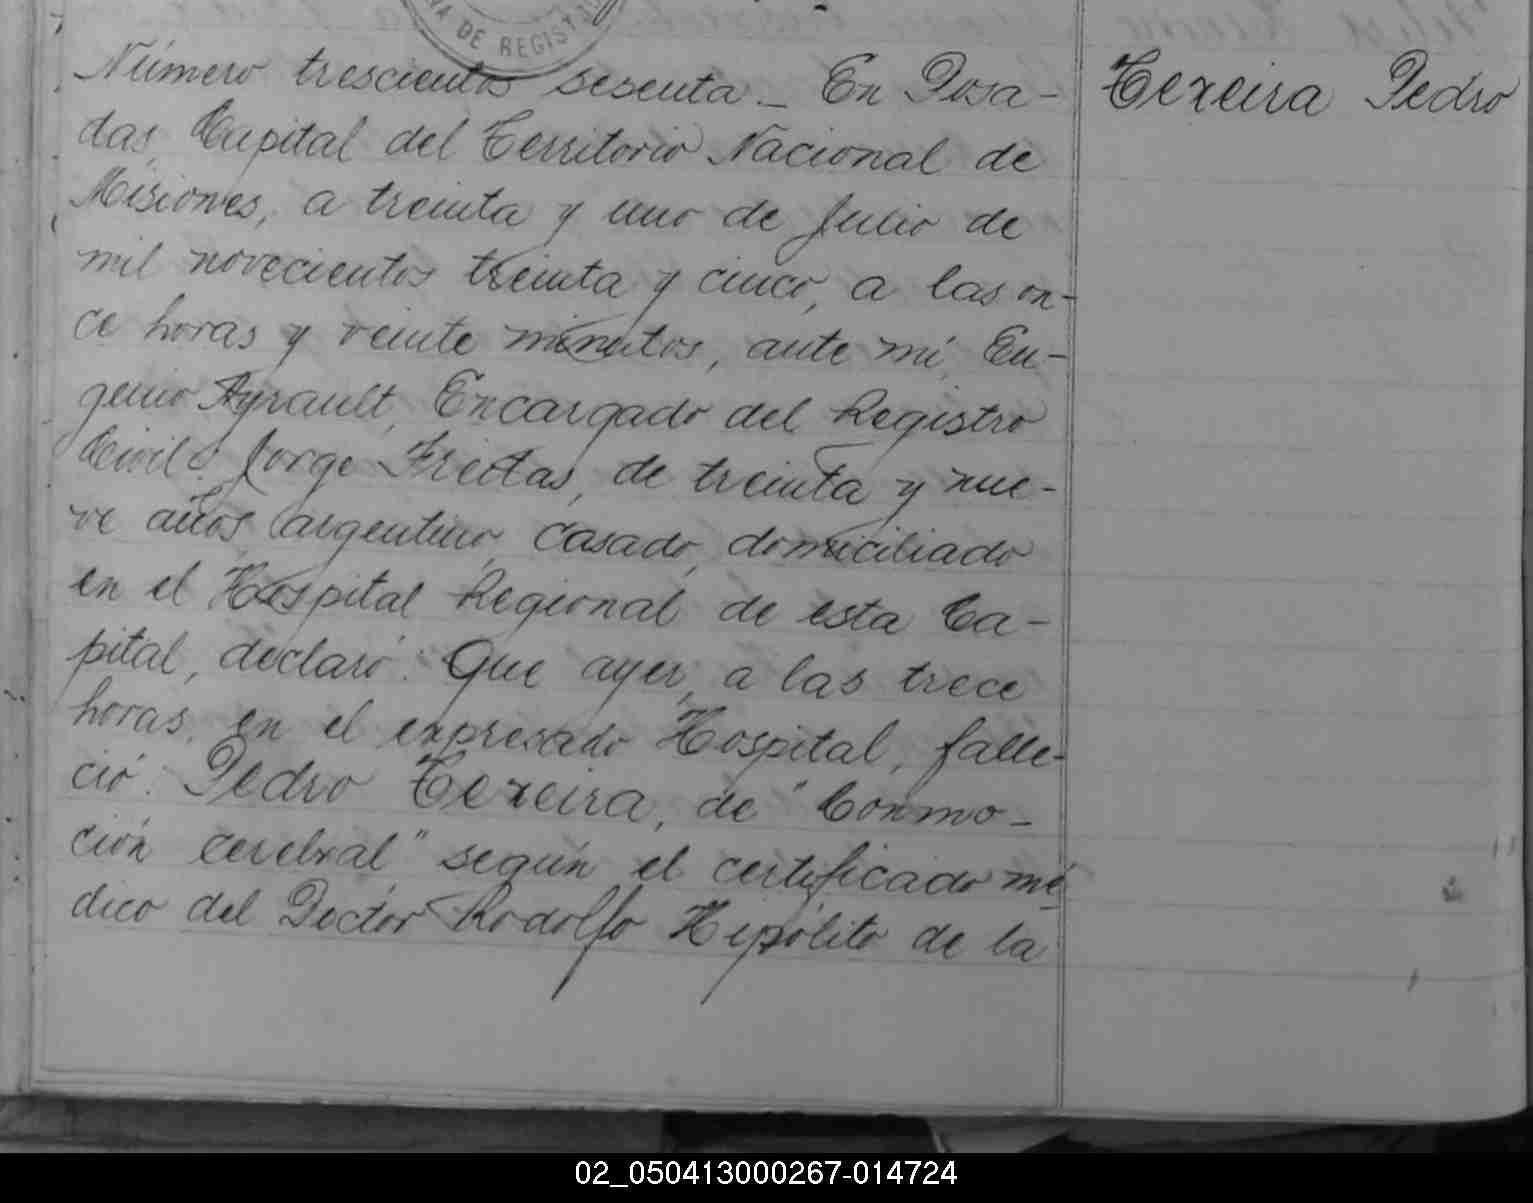 DE REGIST
Número trescientos sesenta_ En Posa- Texeira Pedro
das, Capital del Territorio Nacional de
Misiones, a treinta y uno de Julio de
mil novecientos treinta y cinco, a las on-
ce horas y veinte minutos, ante mi, Eu-
genio Ayrault, Encargado del Registro
Civil; Jorge Freitas, de treinta y nue-
ve años, argentino, casado, domiciliado
en el Hospital Regional de esta Ca-
pital, declaró: Que ayer, a las trece
horas, en el expresado Hospital, falle-
ció: Pedro Texeira, de "Conmo-
ción cerebral" según el certificado mé-
dico del Doctor Rodolfo Hipólito de la
02_050413000267-014724